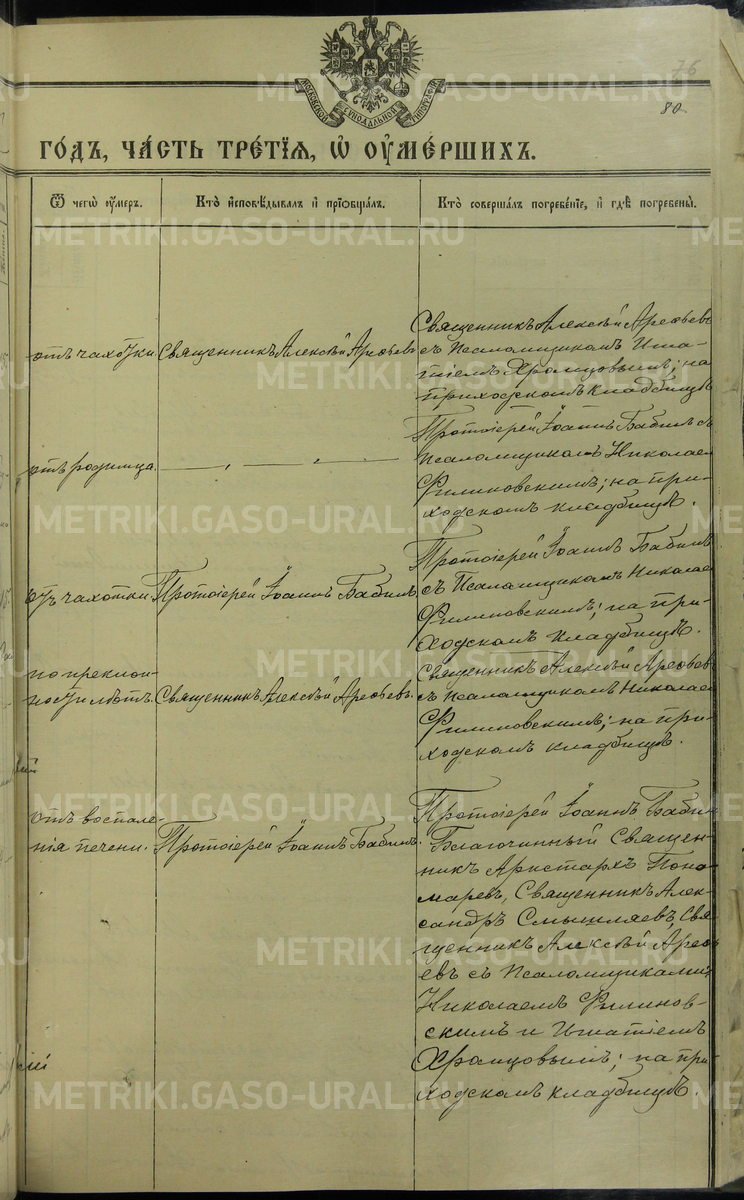 76
80
МОСКОВСКОЙ СѴНОДАЛЬНОЙ ТИПОГРАФІИ
ГО́ДЪ, ЧА́СТЬ ТРЕ́ТІѦ, Ѡ҆ ОУ҆МЕ́РШИХЪ.
Ѿ чегѡ̀ ᲂу҆́меръ.
Кто̀ и҆сповѣ́дывалъ и҆ прїѻбща́лъ.
Кто̀ соверша́лъ погребе́нїе, и҆ гдѣ̀ погребены̀.
отъ чахотки.
Священникъ Алексѣй Арефьевъ
Священникъ Алексѣй Арефьевъ
съ Псаломщикомъ Игна-
тіемъ Храмцовымъ; на
приходскомъ кладбищѣ
отъ родимца.
— „ — „ —
Протоіерей Іоаннъ Бабинъ съ
Псаломщикомъ Николаем
Филиновскимъ; на при-
ходскомъ кладбищѣ.
отъ чахотки.
Протоіерей Іоаннъ Бабинъ.
Протоіерей Іоаннъ Бабинъ
съ Псаломщикомъ Николаем
Филиновскимъ; на при-
ходскомъ кладбищѣ.
по преклон-
ности лѣтъ.
Священникъ Алексѣй Арефьевъ.
Священникъ Алексѣй Арефьев
съ Псаломщикомъ Николаем
Филиновскимъ; на при-
ходскомъ кладбищѣ.
отъ воспале-
нія печени.
Протоіерей Іоаннъ Бабинъ.
Протоіерей Іоаннъ Бабин
Благочинный Священ-
никъ Аристархъ Поно-
маревъ, Священникъ Алек-
сандръ Смышляевъ, Свя-
щенникъ Алексѣй Арефь
евъ съ Псаломщиками
Николаемъ Филинов-
скимъ и Игнатіемъ
Храмцовымъ; на при-
ходскомъ кладбищѣ.
METRIKI.GASO-URAL.RU